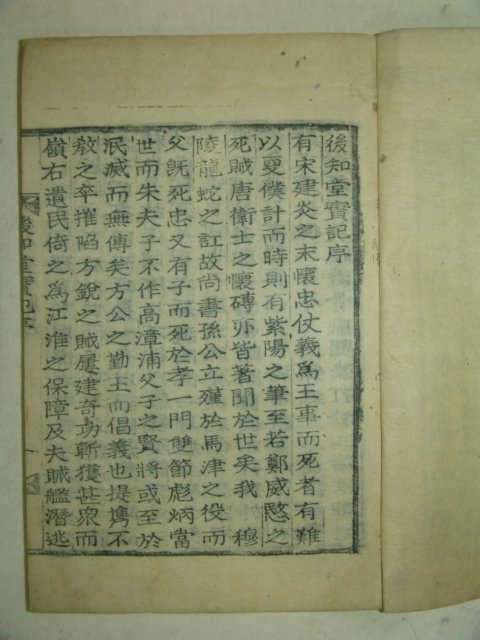 後知堂實記序
有宋建炎之末懷忠仗義爲王事而死者有難
以夏僕計而時則有紫陽之筆至若鄭威愍之
死賊唐衛士之懷磚亦皆著聞於世矣我 穆
陵龍蛇之訌故尚書孫公立殣於馬津之役而
父旣死忠又有子而死於孝一門雙節彪炳當
世而朱夫子不作高漳浦父子之賢將或至於
泯滅而無傳矣方公之勤王而倡義也提携不
敎之卒摧陷方銳之賊屢建奇功斬獲甚衆而
嶺右遺民倚之爲江淮之保障及夫賊艦潛逃
後知堂實記序 一